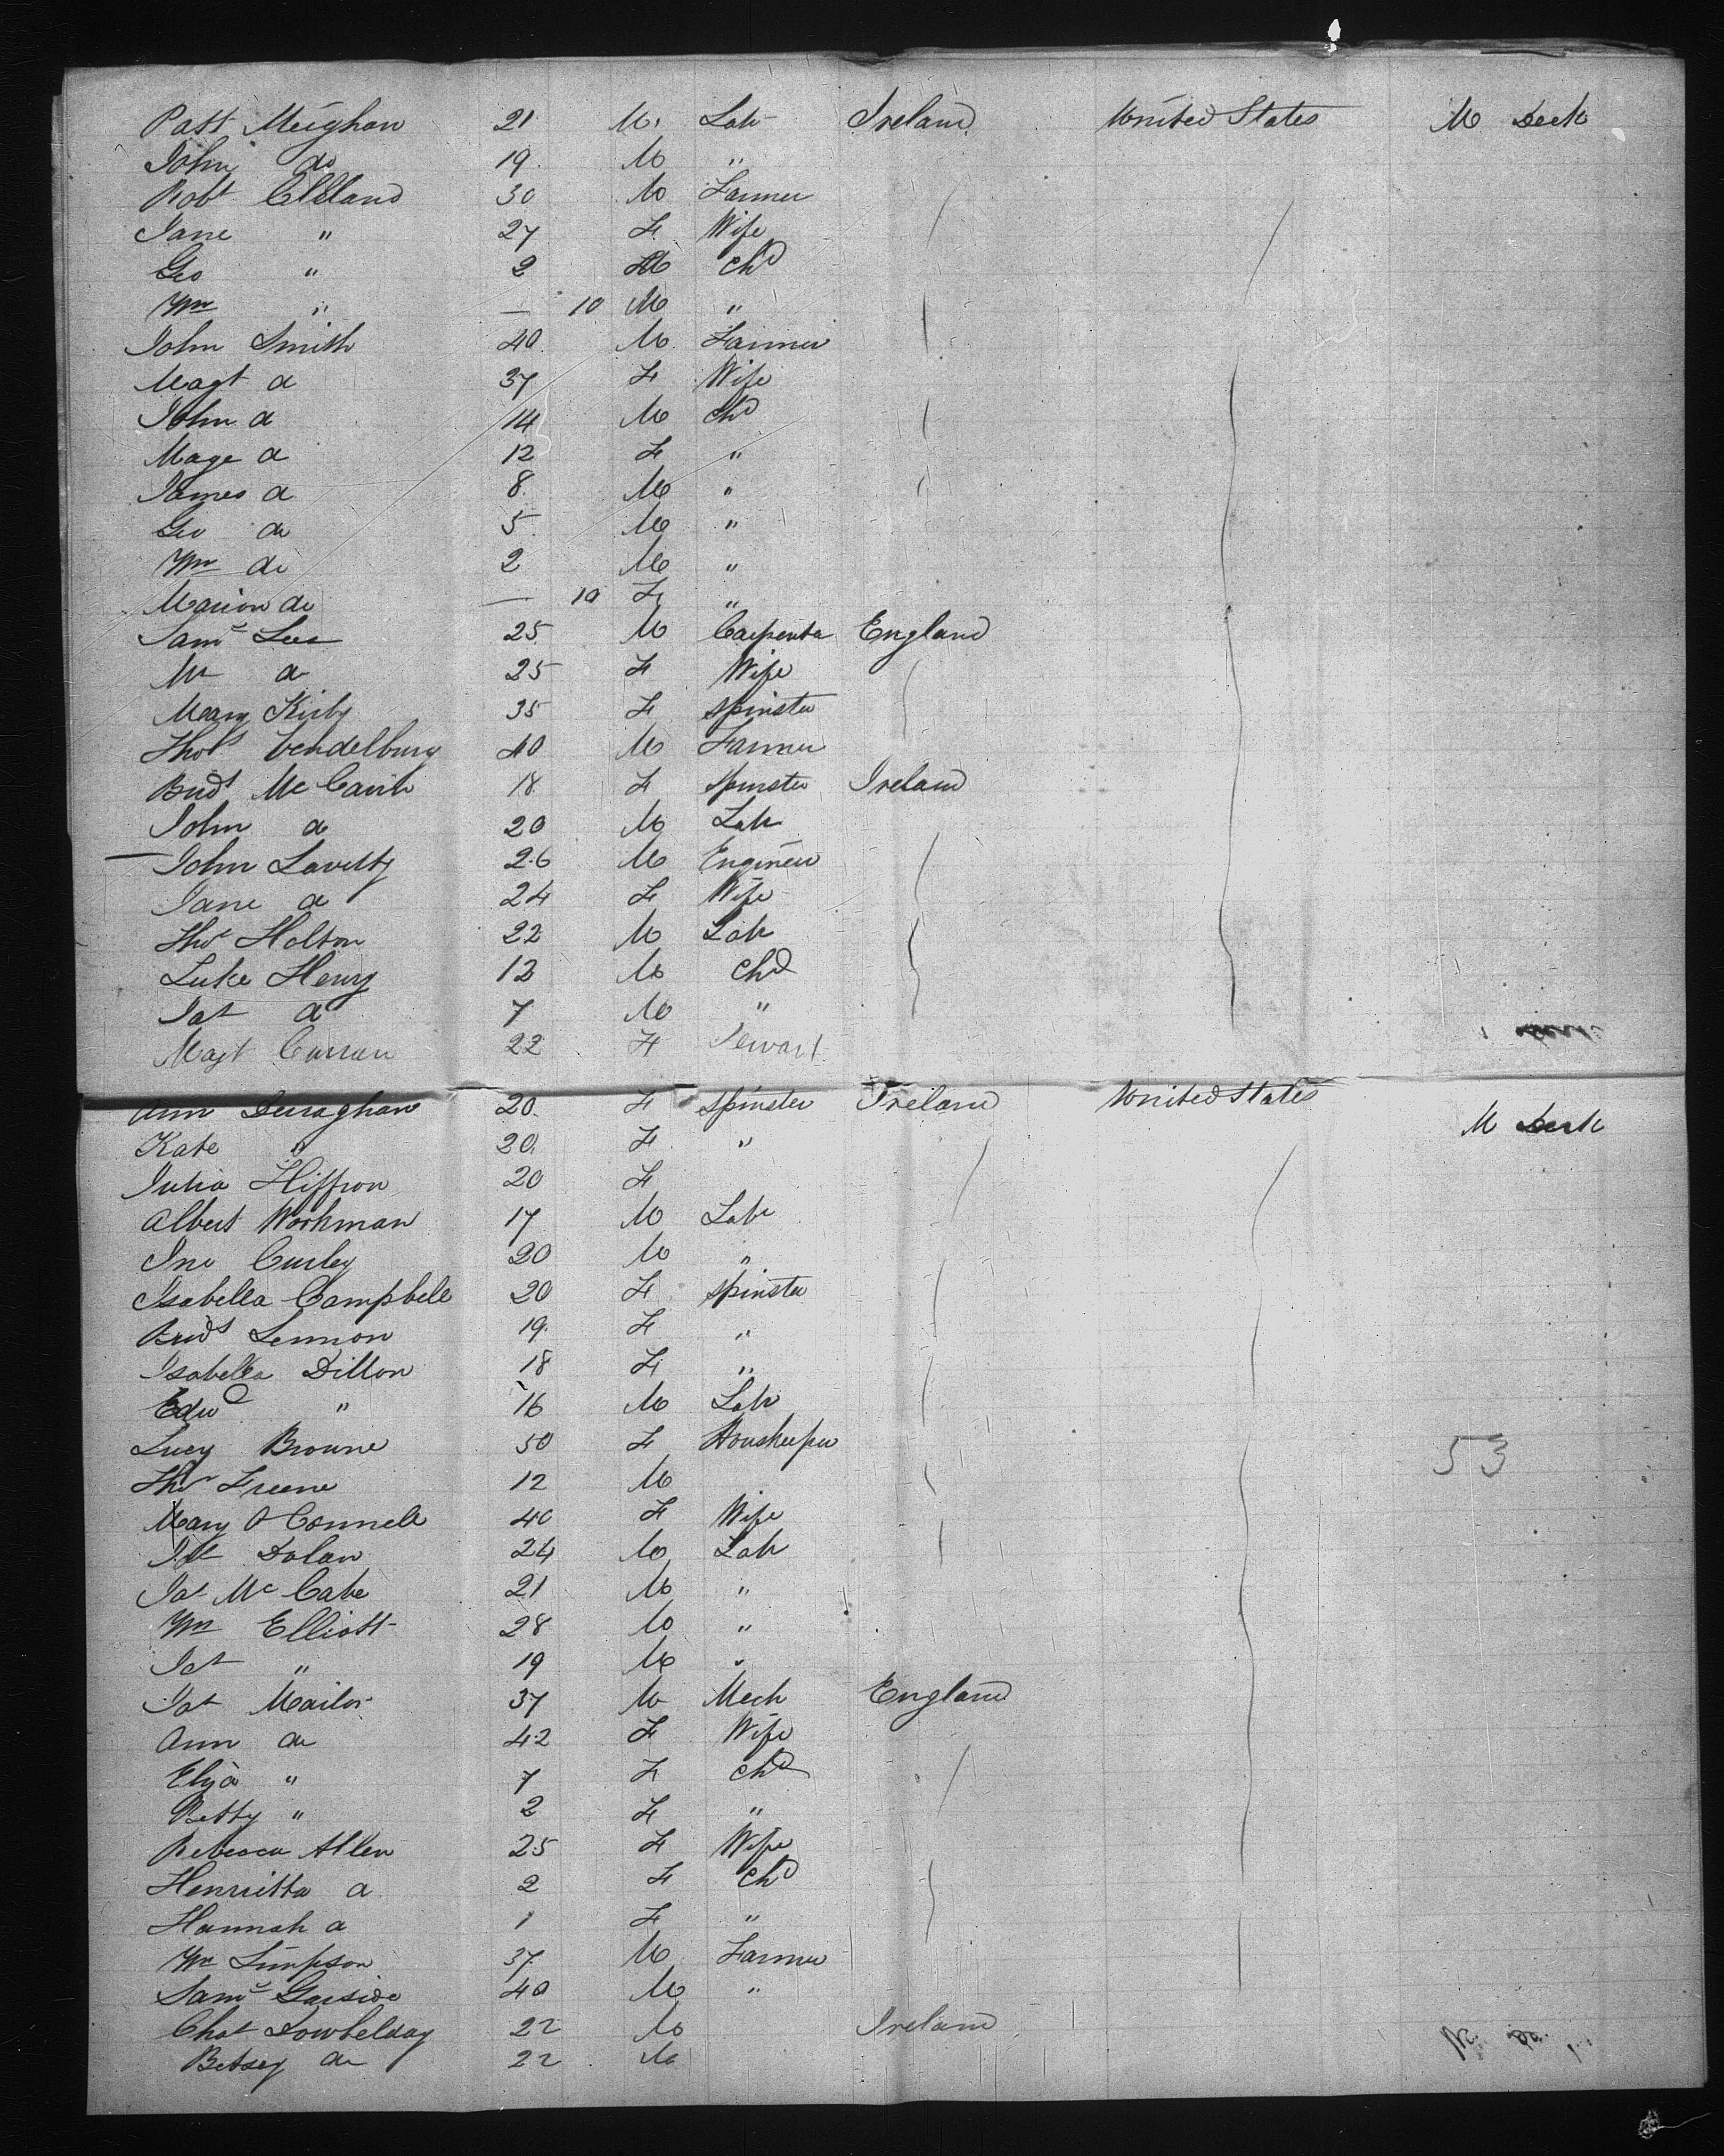 Patt Meighan 21 M Lab Ireland United States M Deck
John do 19 M "
Robt Cleland 30 M Farmer
Jane " 27 F Wife
Geo " 2 M Chd
Wm " — 10 M "
John Smith 40 M Farmer
Magt do 37 F Wife
John do 14 M Chd
Mage do 12 F "
James do 8 M "
Geo do 5 M "
Wm do 2 M "
Marion do — 10 F "
Saml Lee 25 M Carpenter England
Mr do 25 F Wife
Mary Kirby 35 F Spinster
Thos Vendelburg 40 M Farmer
Bridt Mc 18 F Spinster Ireland
John do 20 M Lab
— John Laverty 26 M Engineer
Jane do 24 F Wife
Thos Holton 22 M Lab
Luke Henry 12 M Chd
Jas do 7 M "
Magt Curran 22 F Servant
Ann Deraghan 20 F Spinster Ireland United States M Deck
Kate " 20 F "
Julia Hiffron 20 F
Albert Workman 17 M Labr
Jno Curley 20 M "
Isabella Campbell 20 F Spinster
Bridt Lennon 19 F "
Isabella Dillon 18 F "
Edwd " 16 M Lab
Lucy Browne 50 F Housekeeper 53
Thos Freene 12 M
Mary O Connell 40 F Wife
Jas Dolan 24 M Lab
Jas Mc Cabe 21 M "
Wm Elliott 28 M "
Jas " 19 M "
Jas Mailor 37 M Mech England
Ann do 42 F Wife
Eliza " 7 F Chd
Betty " 2 F "
Rebecca Allen 25 F Wife
Henritta do 2 F Chd
Hannah do 1 F "
Wm Simpson 37 M Farmer
Saml Garside 40 M "
Chas 22 M Ireland
Betsey do 22 M